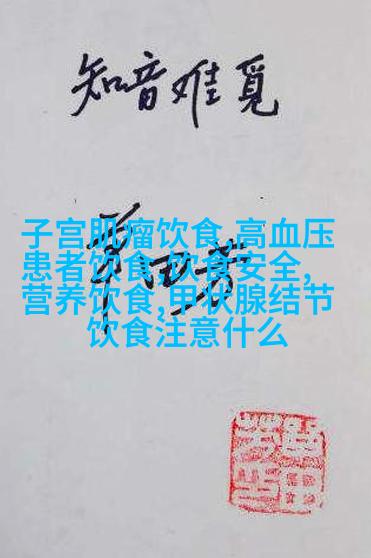 知音难觅
子宫肌瘤饮食,高血压
患者饮食,饮食安全,
营养饮食,甲状腺结节
饮食注意什么